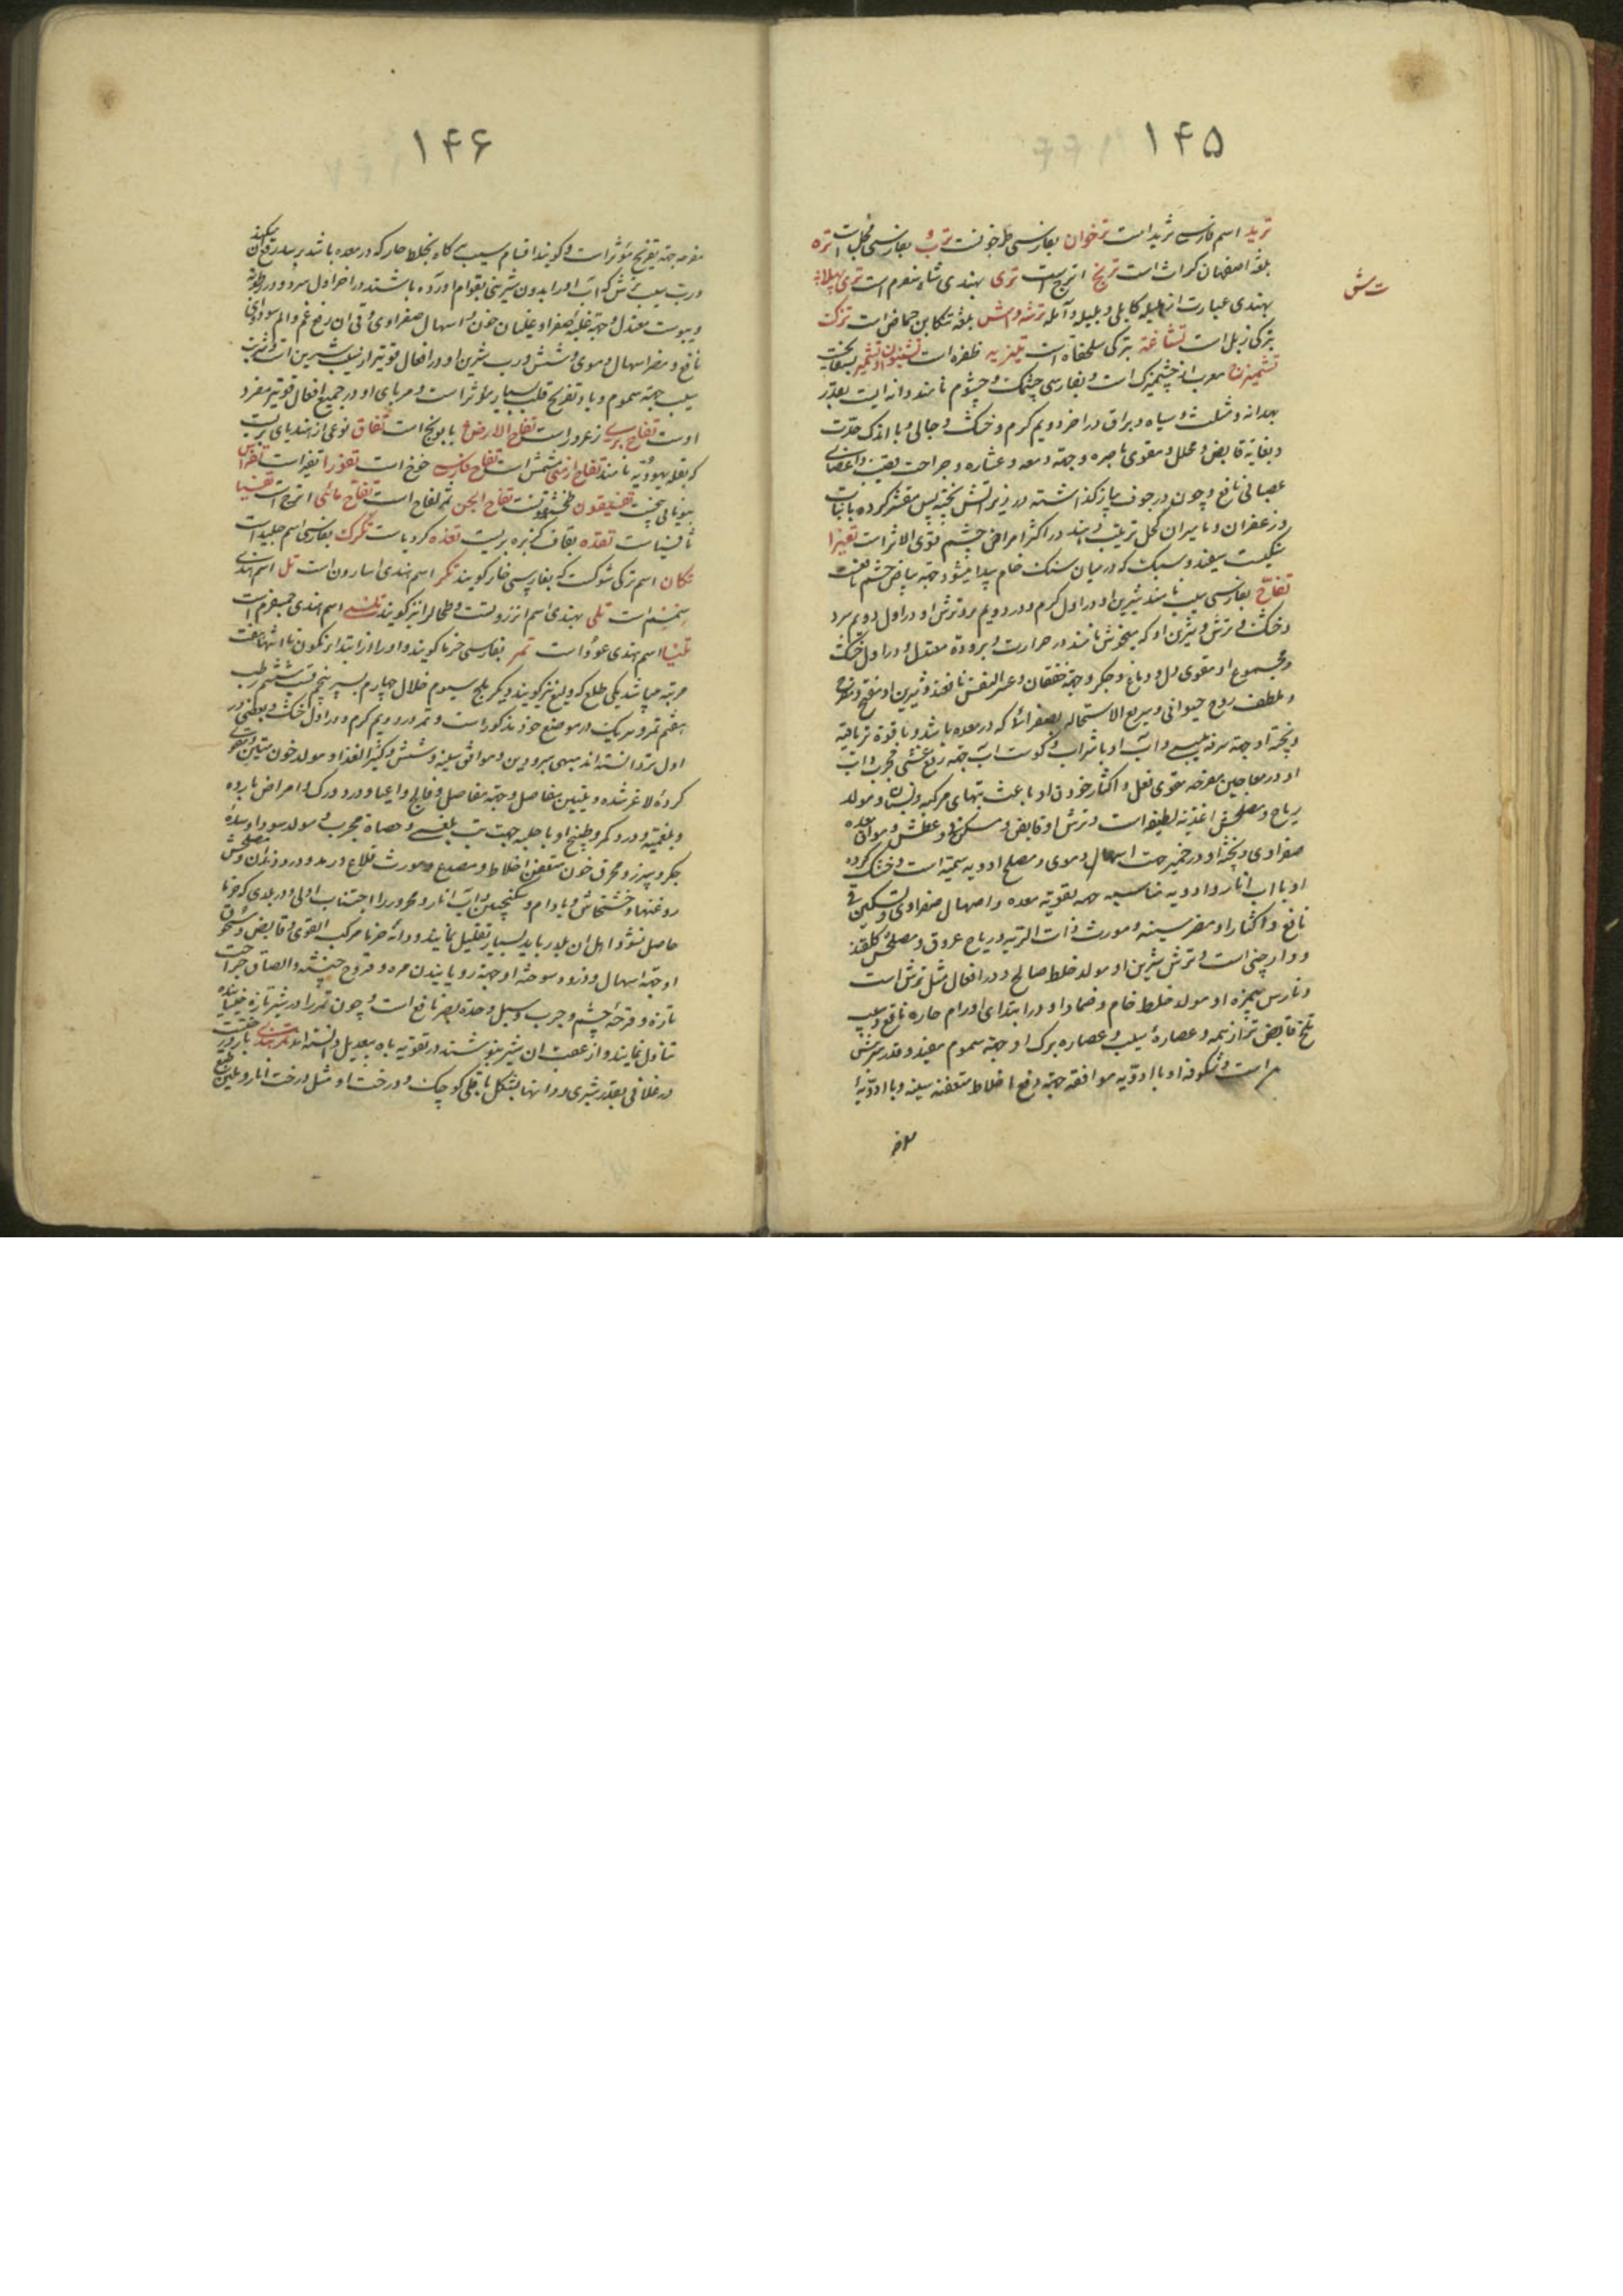 ۱۴۵
ترید اسم فارسی ثرید است ترخوان بفارسی طرخونست ترب بفارسی فجل است تره
بلغة اصفهان کراث است ترنج اترج است تری بهندی شاه سفرم است تری پهلا
بهندی عبارت از هلیله کابلی و بلیله و آمله ترشه وامش بلغة تنکابن حماض است ترک
ت ش
بترکی زبل است تشاغه بترکی سلحفاة است ظفره است
تشمیزج معرب از چشمیزک است و بفارسی چشمک و چشوم نامند دانه ایست بقدر
بهدانه و مثلث و سیاه و براق در آخر دویم گرم و خشک و جالی و با اندک حدت
و بغایة قابض و محلل و مقوی باصره و جهة رمد و غشاوه و جراحت قضیب و اعضای
عصبانی نافع و چون در جوف پیاز گذاشته در زیر آتش پخته پس مقشر کرده با نبات
و زعفران و مامیران کحل ترتیب دهند در اکثر امراض چشم قوی الاثر است
سنگیست سفید و سبک که در میان سنگ خام پیدا میشود جهة بیاض چشم نافعست
تفاح بفارسی سیب نامند شیرین او در اول گرم و در دویم تر و ترش او در اول دویم سرد
و خشک و ترش و شیرین او که میخوش نامند در حرارت و برودة معتدل و در اول خشک
و مجموع او مقوی دل و دماغ و جگر و جهة خفقان و عسر النفس نافعند و شیرین او مفتح و مفرح
و ملطف روح حیوانی و سریع الاستحاله بصفرائی که در معده باشد و با قوة تریاقیه
و پخته او جهة سرفه یبسی و آب او با شراب و گوشت آب جهة رفع غشی مجرب و آب
او در معاجین مفرحه مقوی فعل و اکثار خوردن او باعث تبهای مرکبه و نسیان و مولد
ریاح و مصلحش اغذیه لطیفه است و ترش او قابض و مسکن قی و عطش و موافق معده
صفراوی و پخته او در خمیر جهة اسهال دموی و مصلح ادویه سمیه است و خشک کرده
او با آب انار و ادویه مناسبه جهة تقویة معده و اسهال صفراوی و تسکین قی
نافع و اکثار او مضر سینه و مورث ذات الریه و ریاح عروق و مصلحش گلقند
و دارچینی است و ترش شیرین او مولد خلط صالح و در افعال مثل ترش است
و نارس بیمزه او مولد خلط خام و ضماد او در ابتدای اورام حاره نافع و سیب
تلخ قابض تر از همه و عصارۀ سیب و عصاره برگ او جهة سموم مفید و قدر شربتش
است و شکوفه او با ادویه موافقه جهة دفع اخلاط متعفنه سینه و با ادویۀ
۱۴۶
مفرحه جهة تفریح مؤثر است و گویند اقسام سیب گاه بخلط حار که در معده باشد برسد رفع آن میکند
و رب سیب ترش که آب او را بدون شیرینی بقوام آورده باشند در آخر اول سرد و در رطوبة
و یبوست معتدل و جهة غلبۀ صفرا و غلیان خون و اسهال صفراوی و قی آن و رفع غم و الم سوداوی
نافع و مضر اسهال دموی و شش و رب شیرین او در افعال قویتر از سیب شیرین است و شربت
سیب جهة سموم و با و تفریح قلب بسیار مؤثر است و مربای او در جمیع افعال قویتر مفرد
اوست تفاح بری زعرور است تفاح الارض بابونج است تفاق نوعی از هندبای بریست
که بقله یهودیه نامند تفاح ارمنی مشمش است تفاح فارسی خوخ است
بیونانی تفاح الجن ثمر لفاح است تفاح مائی اترج است تفسیا
ثافسیا است تقده بقاف کزبره بریست تقده کرویاست تگرگ بفارسی اسم جلیدست
تکان اسم ترکی شوکست که بفارسی خار گویند تکر اسم هندی اسارون است تل اسم هندی
سمسم است تلی بهندی اسم انزروتست و طحال را نیز گویند تلسی اسم هندی است
اسم هندی عود است تمر بفارسی خرما گویند و او را از ابتدا از تکون تا انتها هفت
مرتبه میباشد یکی طلع که ولیع نیز گویند و یکی بلح سیوم خلال چهارم بسر پنجم قسب ششم رطب
هفتم تمر و هر یک در موضع خود مذکور است و تمر در دویم گرم و در اول خشک و بعضی در
اول تر دانسته اند مبهی مبرودین و موافق سینه و شش و کثیر الغذا و مولد خون متین و مقوی
کردۀ لاغر شده و ملین مفاصل و جهة مفاصل و فالج و اعیا و درد ورک و امراض بارده
و بلغمیه و درد کمر و طبیخ او با حلبه جهت تب بلغمی و حصاة مجرب و مولد سودا و سدۀ
جگر و سپرز و محرق خون متعفن اخلاط و مصدع و مورث قلاع و رمد و درد دندان و مصلحش
روغنها و خشخاش و بادام و سکنجبین و آب انار و محرور را اجتناب اولی و در بلدی که خرما
حاصل نشود اهل آن بلد را باید بسیار تقلیل نمایند و دانۀ خرما مرکب القوی و قابض و سحوق
او جهة اسهال و ذرور سوخته او جهة رویانیدن مژه و قروح خبیثه و الصاق جراحت
تازه و قرحۀ چشم و جرب و سبل و حدة بصر نافع است و چون تمر را در شیر تازه خیسانیده
تناول نمایند و از عقب آن شیر بنوشند در تقویة باه بیعدیل دانسته اند تمر هندی بار درختست
در غلافی بقدر شبری و دانها بشکل باقلی کوچک و درخت او مثل درخت انار و ملین طبع